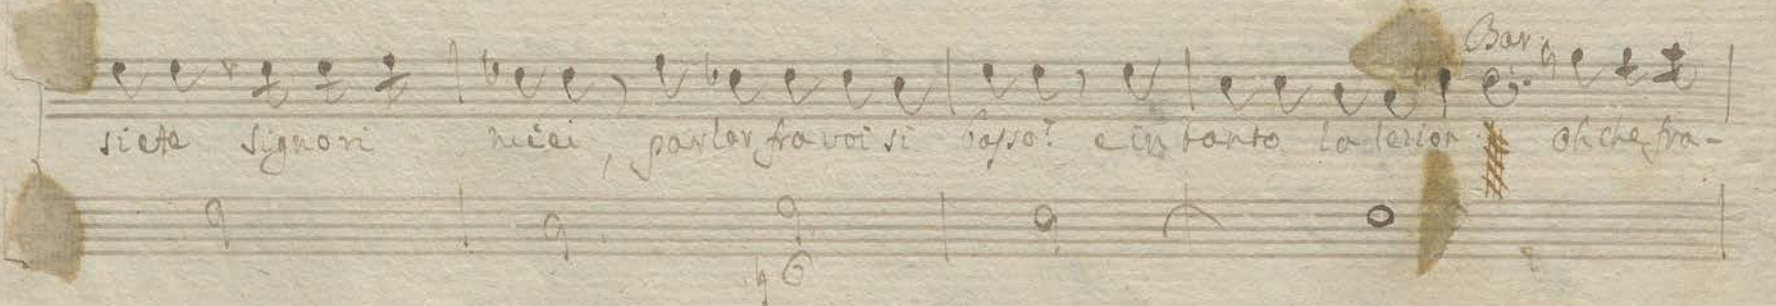 Bar.
siete signori miei, parlar fra voi si basso? e in tanto la lezion oh che fra-